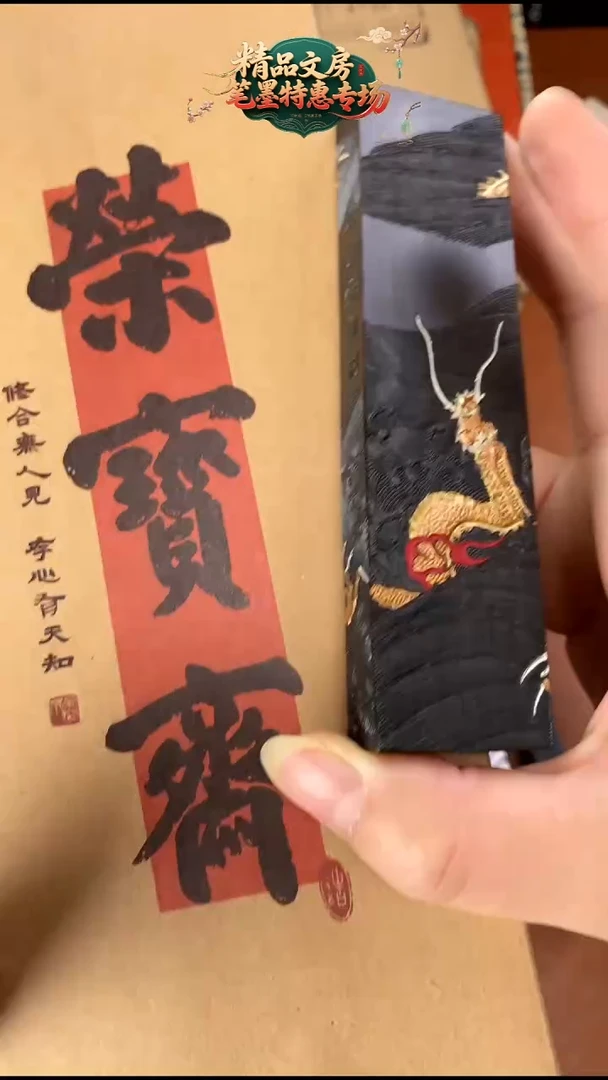 精品文房
笔墨特惠专场
榮寳齋
修合無人見 存心有天知